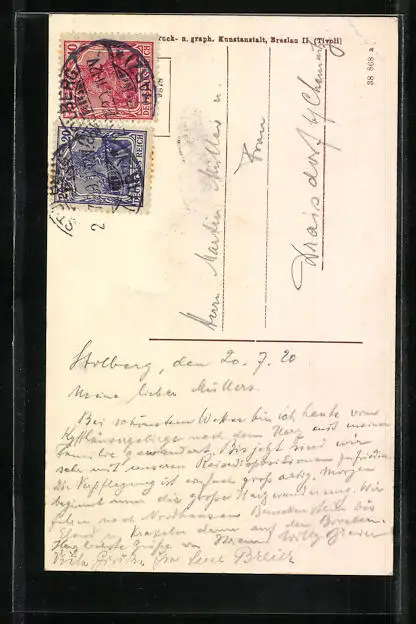 Druck- u. graph. Kunstanstalt, Breslau II (Tivoli)
38 868 a
DEUTSCHES REICH
10
20
Herrn Martin Müller u.
Frau
Draisdorf b/ Chemnitz
Stolberg, den 20.7.20
Meine lieben Müllers.
Bei schönstem Wetter bin ich heute vom
Kyffhäusergebirge nach dem Harz mit meiner
Familie gewandert. Bis jetzt sind wir
sehr mit unseren Reisedispositionen zufrieden
Die Verpflegung ist einfach großartig. Morgen
beginnt nun die große Harzwanderung. Wir
fahren nach Nordhausen
und dann auf den Brocken.
Herzlichste Grüße von Willy Breier
Breier